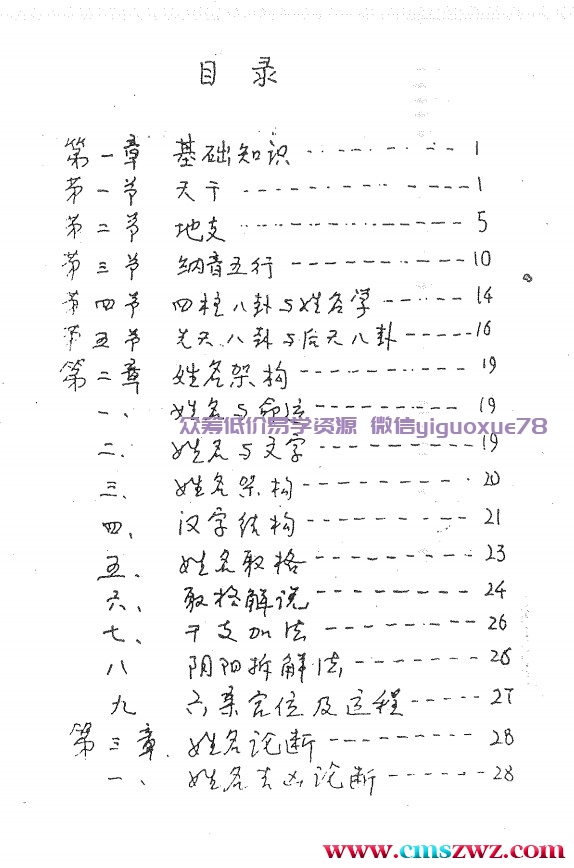 目 录
第一章 基础知识 ---------- 1
第一节 天干 ---------- 1
第二节 地支 ---------- 5
第三节 纳音五行 ---------- 10
第四节 四柱八卦与姓名学 ------ 14
第五节 先天八卦与后天八卦 ----- 16
第二章 姓名架构 ---------- 19
一、 姓名与命运 ---------- 19
众筹低价易学资源 微信yiguoxue78
二、 姓名与文字 ---------- 19
三、 姓名架构 ---------- 20
四、 汉字结构 ---------- 21
五、 姓名取格 ---------- 23
六、 取格解说 ---------- 24
七、 干支加法 ---------- 26
八 阴阳拆解法 --------- 26
九 六亲宫位及运程 ----- 27
第三章、 姓名论断 --------- 28
一、 姓名吉凶论断 ------ 28
www.cmszwz.com